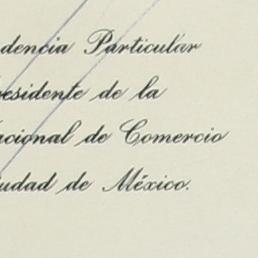 dencia Particular
residente de la
acional de Comercio
udad de México.